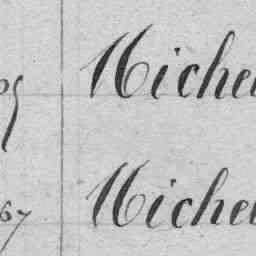 Michel
67 Michel